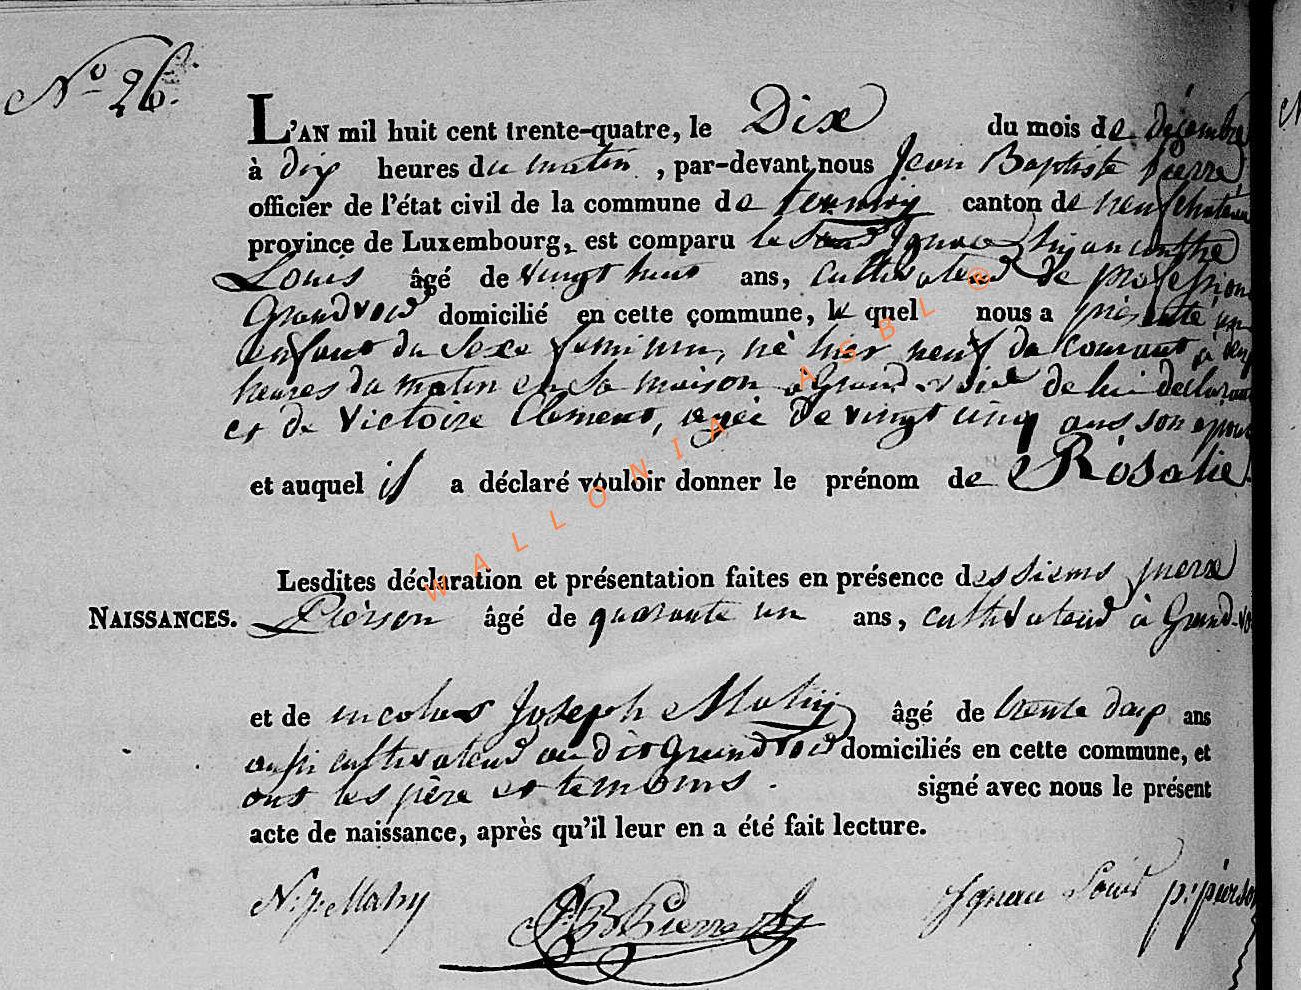 N° 26.
L'AN mil huit cent trente-quatre, le Dix du mois de décembre
à dix heures du matin, par-devant nous Jean Baptiste Pierre
officier de l'état civil de la commune de canton de neufchateau
province de Luxembourg, est comparu le Sieur Ignace
Louis âgé de vingt huit ans, cultivateur de profession
Grandvoir domicilié en cette commune, le quel nous a présenté un
enfant du Sexe feminin, né hier neuf du courant à
heures du matin en sa maison à Grand-voir de lui déclarant
et de Victoire Clement, agée de vingt cinq ans son epouse
et auquel il a déclaré vouloir donner le prénom de Rosalie.
Lesdites déclaration et présentation faites en présence des sieurs pierre
NAISSANCES. Pierson âgé de quarante un ans, cultivateur à Grand-vo
et de nicolas Joseph Mahy âgé de trente deux ans
aussi cultivateur au dit Grandvoir domiciliés en cette commune, et
ont les père et temoins. signé avec nous le présent
acte de naissance, après qu'il leur en a été fait lecture.
N. j. Mahy J. B. Pierre Ignace Louis p. pierson
WALLONIA ASBL ®